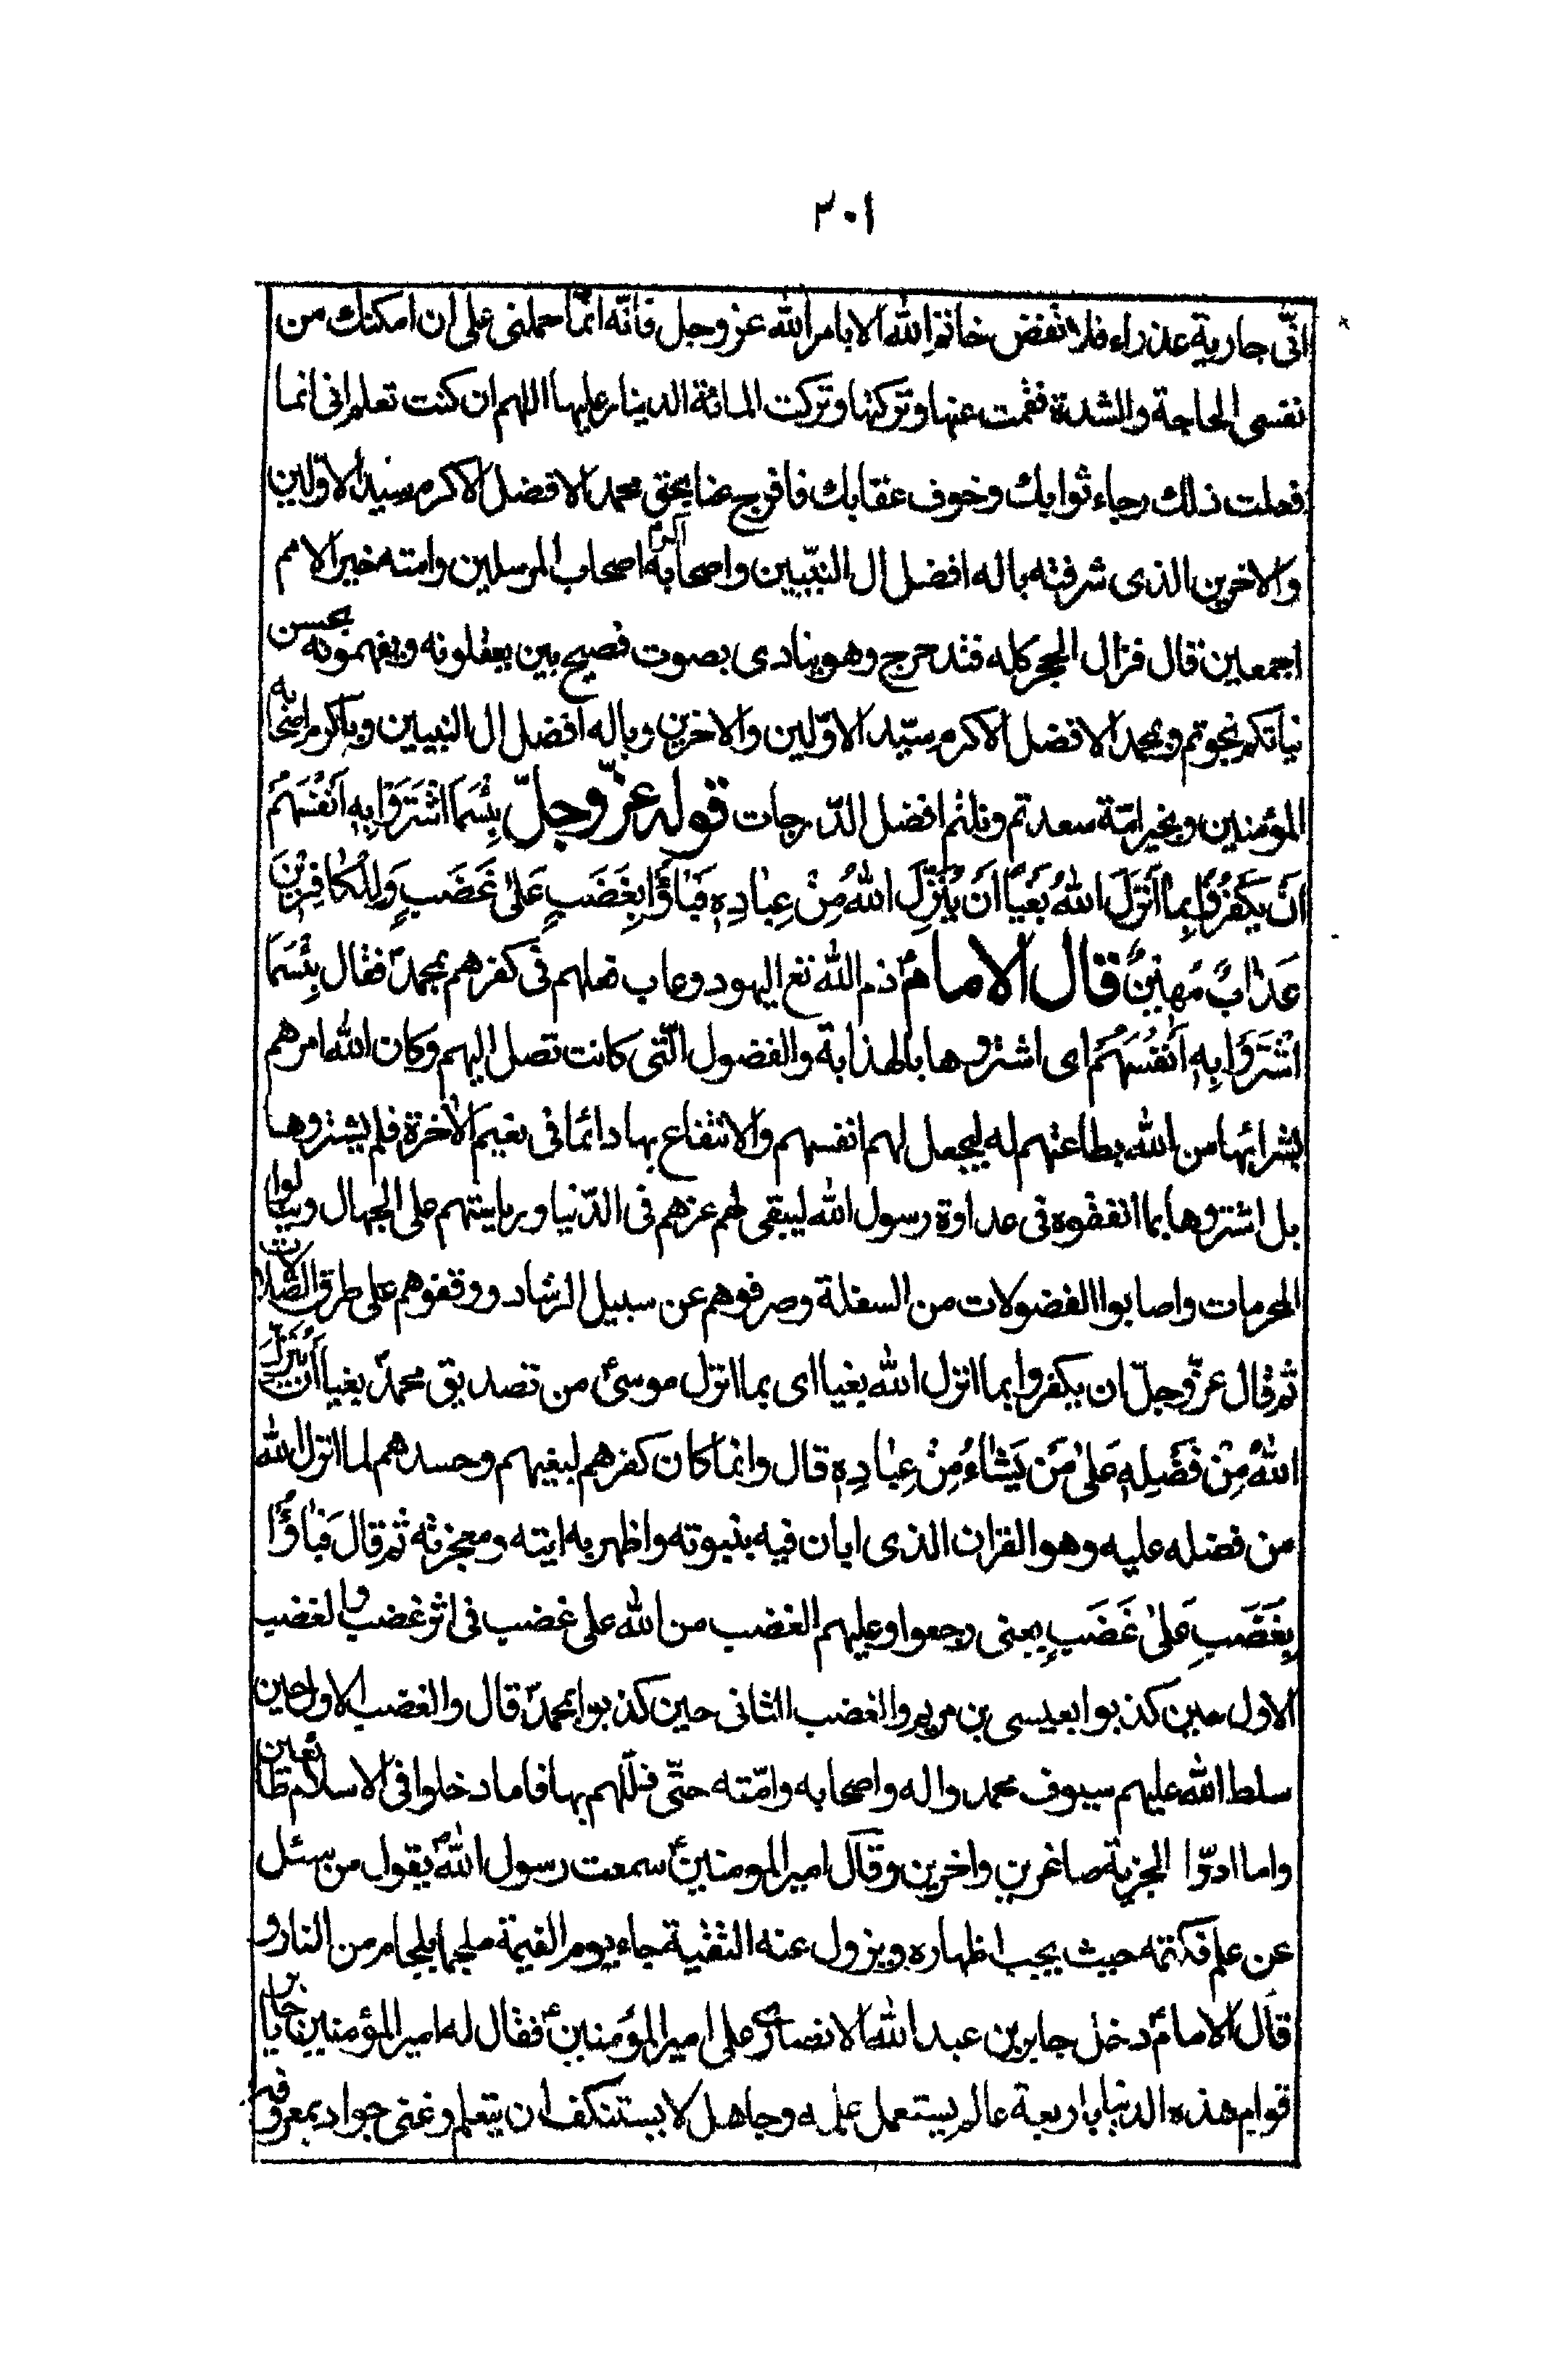 ٣٠١
انّى جارية عذراء فلا تفض خاتم الله الا بامر الله عز وجل فانّه انّما حملنى على ان امكنك من
نفسى الحاجة والشدة فقمت عنها وتركتها وتركت المائة الدينار عليها اللهم ان كنت تعلم انى انما
فعلت ذلك رجاء ثوابك وخوف عقابك فافرج عنا بحق محمد الافضل الاكرم سيد الاوّلين
والاخرين الذى شرفته باله افضل ال النبّيين واصحابه اكرم اصحاب المرسلين وامته خير الامم
اجمعين قال فزال الحجر كله فتدحرج وهو ينادى بصوت فصيح بين يعقلونه ويفهمونه بحسن
نياتكم نجوتم وبمحمد الافضل الاكرم سيّد الاوّلين والاخرين وباله افضل ال النبيين وباكرم اصحابه
المؤمنين وبخير امّة سعدتم ونلتم افضل الدّرجات قوله عزّ وجلّ بِئْسَمَا اشْتَرَوْا بِهِ اَنْفُسَهُمْ
اَنْ يَكْفُرُوا بِما اَنْزَلَ اللهُ بَغْيًا اَنْ يُنَزِّلَ اللهُ مِنْ عِبادِهِ فَباؤُا بِغَضَبٍ عَلىٰ غَضَبٍ وَلِلْكافِرِينَ
عَذابٌ مُهِينٌ قال الامام ع ذم الله تع اليهود وعاب فعلهم فى كفرهم بمحمد ص فقال بِئْسَمَا
اشْتَرَوْا بِهِ اَنْفُسَهُمْ اى اشتروها بالهذابة والفضول الّتى كانت تصل اليهم وكان الله امرهم
بشرائها من الله بطاعتهم له ليجعل لهم انفسهم والانتفاع بها دائما فى نعيم الاخرة فلم يشتروها
بل اشتروها بما انفقوه فى عداوة رسول الله ليبقى لهم عزهم فى الدّنيا ورياستهم على الجهال وينالوا
المحرمات واصابوا الفضولات من السفلة وصرفوهم عن سبيل الرشاد ووقفوهم على طرق الضلالات
ثم قال عزّ وجلّ ان يكفروا بما انزل الله بغيا اى بما انزل موسى ع من تصديق محمد ص بغيا اَنْ يُنَزِّلَ
اللهُ مِنْ فَضْلِهِ عَلىٰ مَنْ يَشاءُ مِنْ عِبادِهِ قال وانما كان كفرهم لبغيهم وحسدهم لما انزل الله
من فضله عليه وهو القران الذى ابان فيه بنبوته واظهر به ايته ومعجزته ثم قالَ فَباؤُا
بِغَضَبٍ عَلىٰ غَضَبٍ يعنى رجعوا وعليهم الغضب من الله على غضب فى اثر غضب والغضب
الاول حين كذبوا بعيسى بن مريم والغضب الثانى حين كذبوا بمحمد ص قال والغضب الاول حين
سلط الله عليهم سيوف محمد واله واصحابه وامّته حتّى ذلّلهم بها فاما دخلوا فى الاسلام طائعين
واما ادّوا الجزية صاغرين داخرين وقال امير المومنين ع سمعت رسول الله ص يقول من سئل
عن علم فكتمه حيث يجب اظهاره ويزول عنه التقية جاء يوم القيمة ملجما بلجام من النار و
قال الامام ع دخل جابر بن عبد الله الانصارى على امير المؤمنين ع فقال له امير المؤمنين يا جابر
قوام هذه الدنيا باربعة عالم يستعمل علمه وجاهل لا يستنكف ان يتعلم وغنى جواد بمعروفه